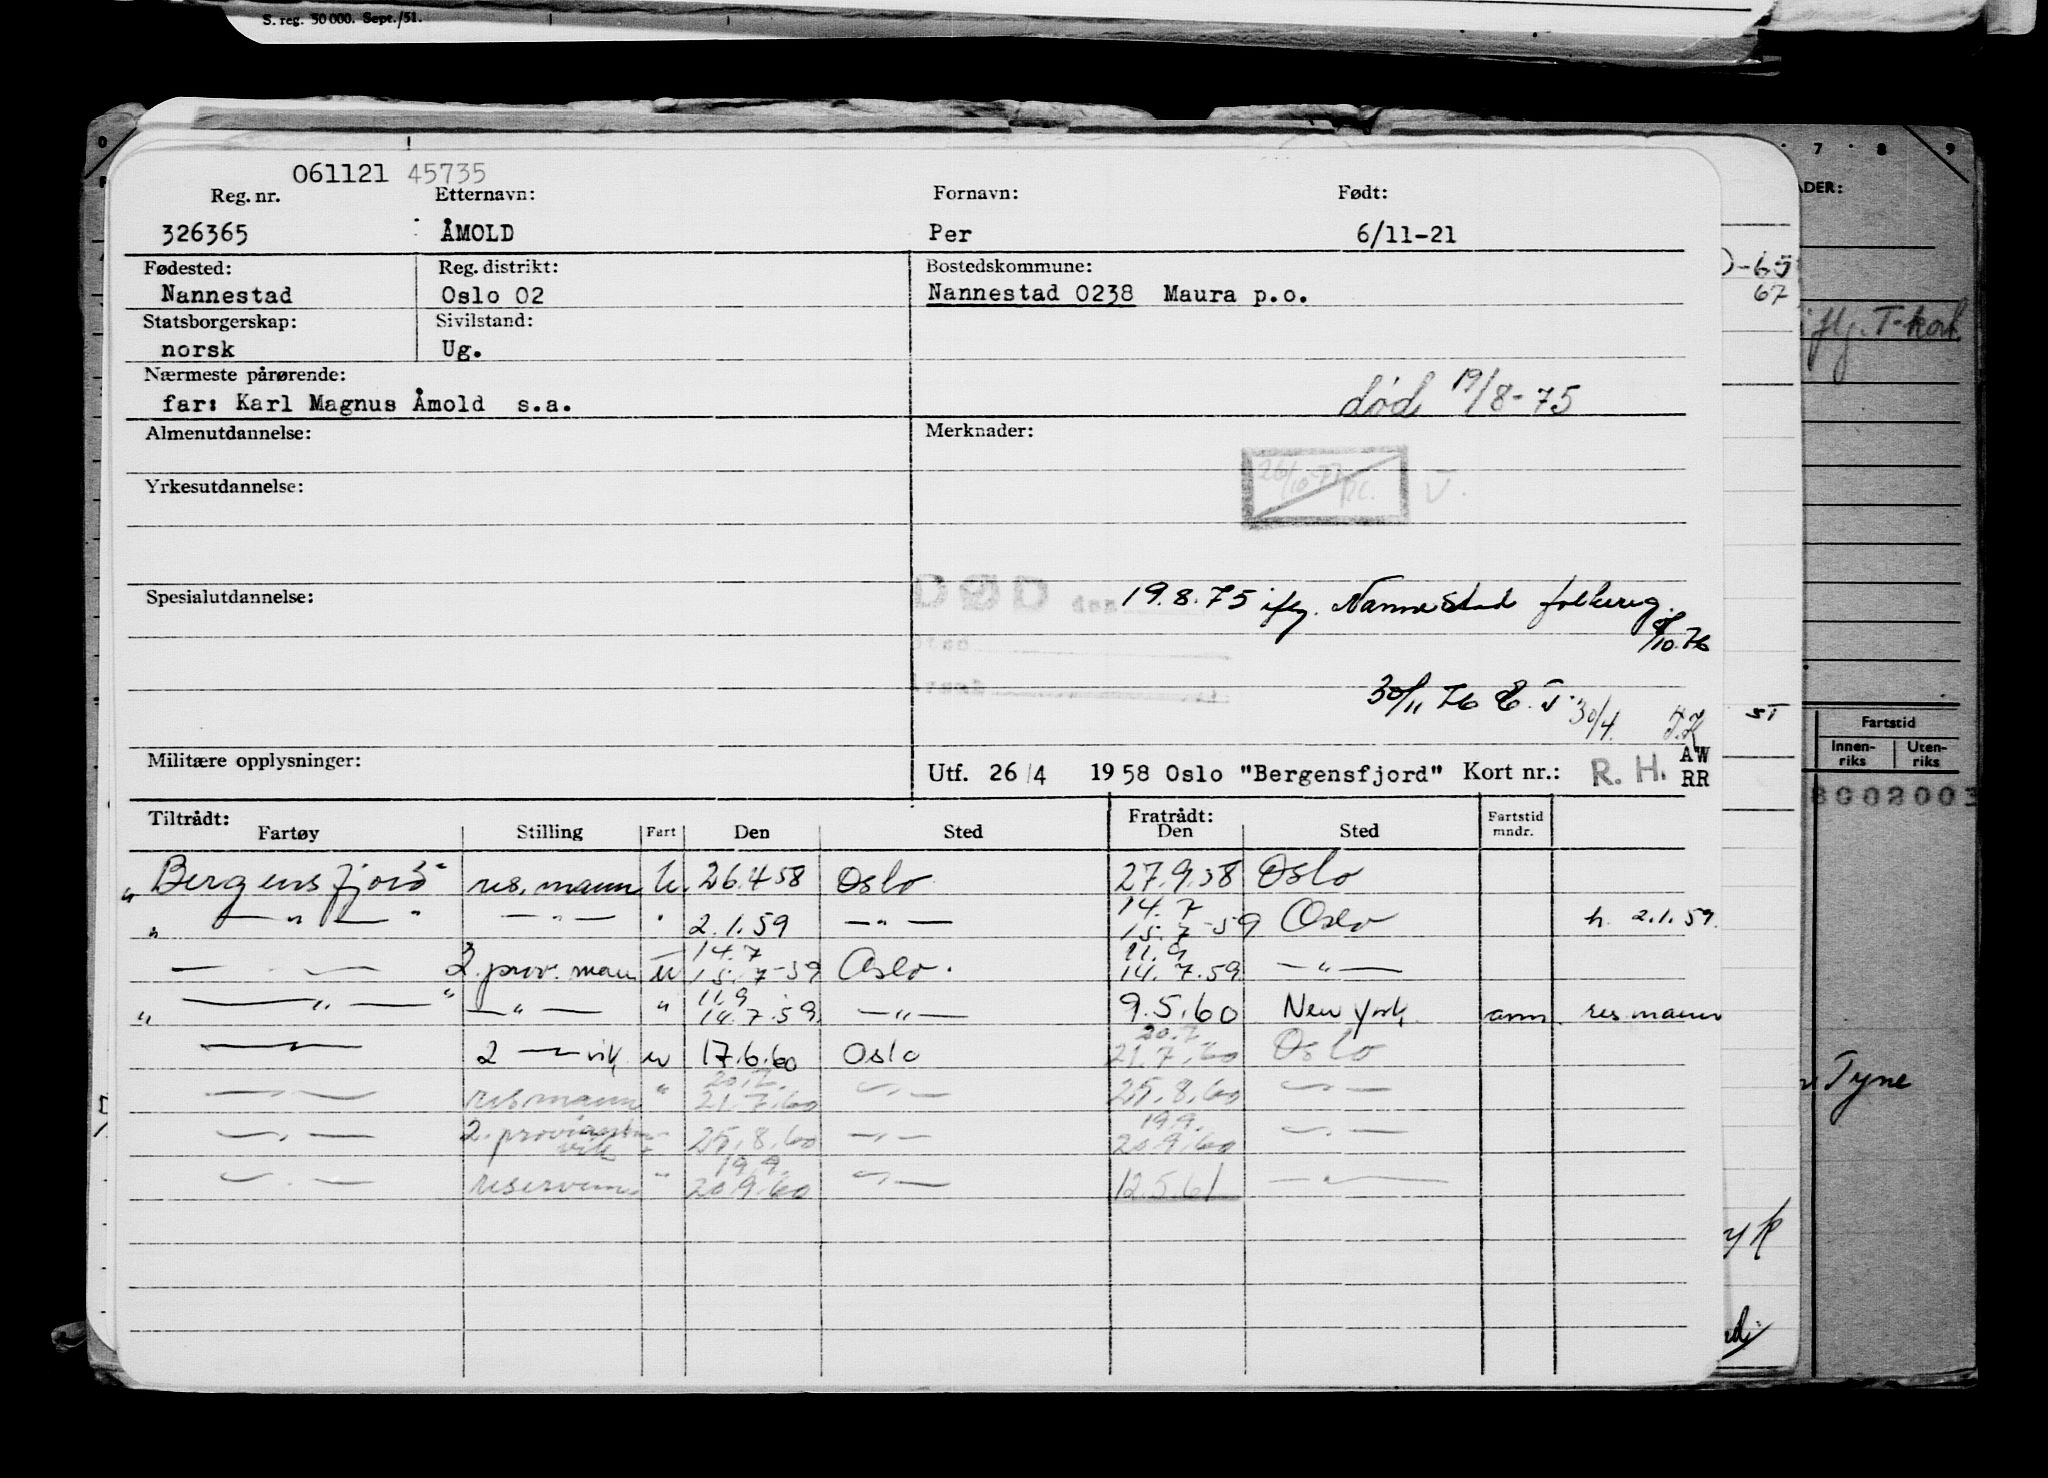 S. reg. 50 000. Sept./51.
061121 45735
Reg. nr. Etternavn: Fornavn: Født:
326365 ÅMOLD Per 6/11-21
Fødested: Reg. distrikt: Bostedskommune:
Nannestad Oslo 02 Nannestad 0238 Maura p.o.
Statsborgerskap: Sivilstand:
norsk Ug.
Nærmeste pårørende:
far: Karl Magnus Åmold s.a.
død 19/8-75
Almenutdannelse: Merknader:
Yrkesutdannelse:
Spesialutdannelse:
19.8.75 ifg. Nannestad folkereg.
/10.76
30/11 76 30/4
Militære opplysninger:
Utf. 26/4 1958 Oslo "Bergensfjord" Kort nr.: R. H. AW
RR
Tiltrådt: Fratrådt:
Fartøy Stilling Fart Den Sted Den Sted Fartstid mndr.
"Bergensfjord" res. mann u. 26.4.58 Oslo 27.9.58 Oslo
" — " — " — " — " 2.1.59 — " — 14.7 15.7-59 Oslo h. 2.1.59.
— " — 2. prov. mann u 14.7 15.7-59 Oslo. 11.9 14.7.59 — " —
" — " — " — " — " 11.9 14.7.59. — " — 9.5.60 New York ann. res mann
— " — 2 — " — vik. u 17.6.60 Oslo 20.7. 21.7.60 Oslo
— " — resmann " 20.7. 21.7.60 — " — 25.8.60 — " —
— " — 2. proviant vik " 25.8.60 — " — 19.9. 20.9.60 — " —
— " — reservem. " 19.9. 20.9.60 — " — 12.5.61 — " —
7 8 9
ADER:
-65
67
ifg. T-kort
ST
Fartstid
Innen-
riks
Uten-
riks
8002003
Tyne